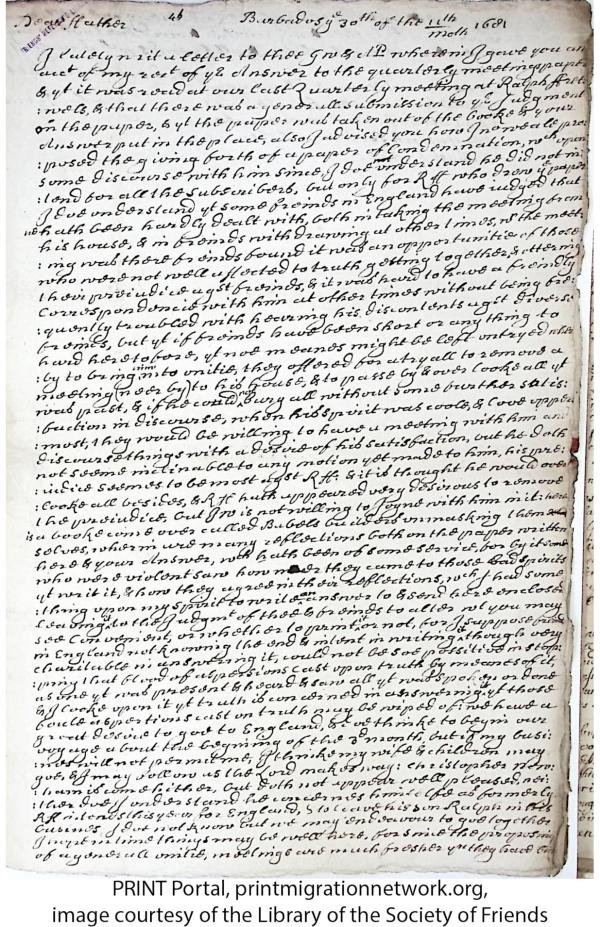 Dear ffather 46 Barbados ye 30th of the 11th moth 1681
I lately writ a letter to thee GW & AP wherein I gave you an
acct of my rect of yr Answer to the quarterly meeting paper
& yt it was read at our last Quarterly meeting at Ralph ffrett
:wels, & that there was a generall submission to yr Judgment
on the paper, & yt the paper was taken out of the booke & your
Answer put in the place, also I advised you how
:posed the giving forth of a paper of Condemnation, wch upon
some discourse with him since I doe understand he did not in:
:tend for all the subscribers, but only for Rff who drew ye paper
I doe understand yt some freinds in England have judged that
hath been hardly dealt with, both in taking the meeting from
his house, & in freinds withdrawing at other times, as the meet
:ing was there freinds found it was an opportunitie of those
who were not well affected to truth getting together, & uttering
their prejudice agst freinds, & it was hard to have a freindly
Correspondencie with him at other times without being fre:
:quently troubled with hearing his discontents agst diverse
freinds, but yt if freinds have been short or any thing to
hard heretofore, yt noe meanes might be left untryed
:by to bring him into unitie, they offered for a tryall to remove a
meeting neer by to his house, & to passe by & over looke all yt
was past, & if he could bury all without some further satis:
:faction in discourse, when his spirit was coole, & love uppe
:most, they would be willing to have a meeting with him and
discourse things with a desire of his satisfaction, but he doth
not seeme inclinable to any motion yet made to him, his pre:
:judice seems to be most agst Rff: & it is thought he would over
:looke all besides, & Rff hath appeared very desirous to remove
the prejudice, but is not willing to Joyne with him in it: here
is a booke come over called Babels builders unmasking them
selves, wherin are many reflections both on the paper written
here & your Answer, wch hath been of some service, for by it some
who were violent saw how neer they came to those bad spirits
yt writ it, & how they agree in their reflections, wch I had some
:thing upon my spirit to write an answer to & send here enclosed
Leaving to the Judgmt of thee & freinds to alter wt you may
see Convenient, or whether to print it or not, for I suppose freinds
in England not knowing the end & intent in writing though very
charitable in answering it, could not be soe positive in stop:
:ping that flood of aspersions cast upon truth by meanes of it,
as one yt was present & heard & saw all yt was spoken or done
& I looke upon it yt truth is concerned in answering yt those
foule aspertions cast on truth may be wiped of: we have a
great desire to goe to England, & doe thinke to begin our
voyage about the begining of the 3d month, but if my busi:
:nes will not permit me, I thinke my wife & children may
goe, & I may follow as the Lord makes way: Christopher
is come hither, but doth not appear well pleased, nei:
:ther doe I understand he concernes himselfe as formerly
Rff intends this year for England, & to leave his son Ralph in his
busines, I doe not know but we may endeavour to goe together
I hope in time things may be well here, for since the proposing
of a generall unitie, meetings are much fresher yn they have
PRINT Portal, printmigrationnetwork.org,
image courtesy of the Library of the Society of Friends